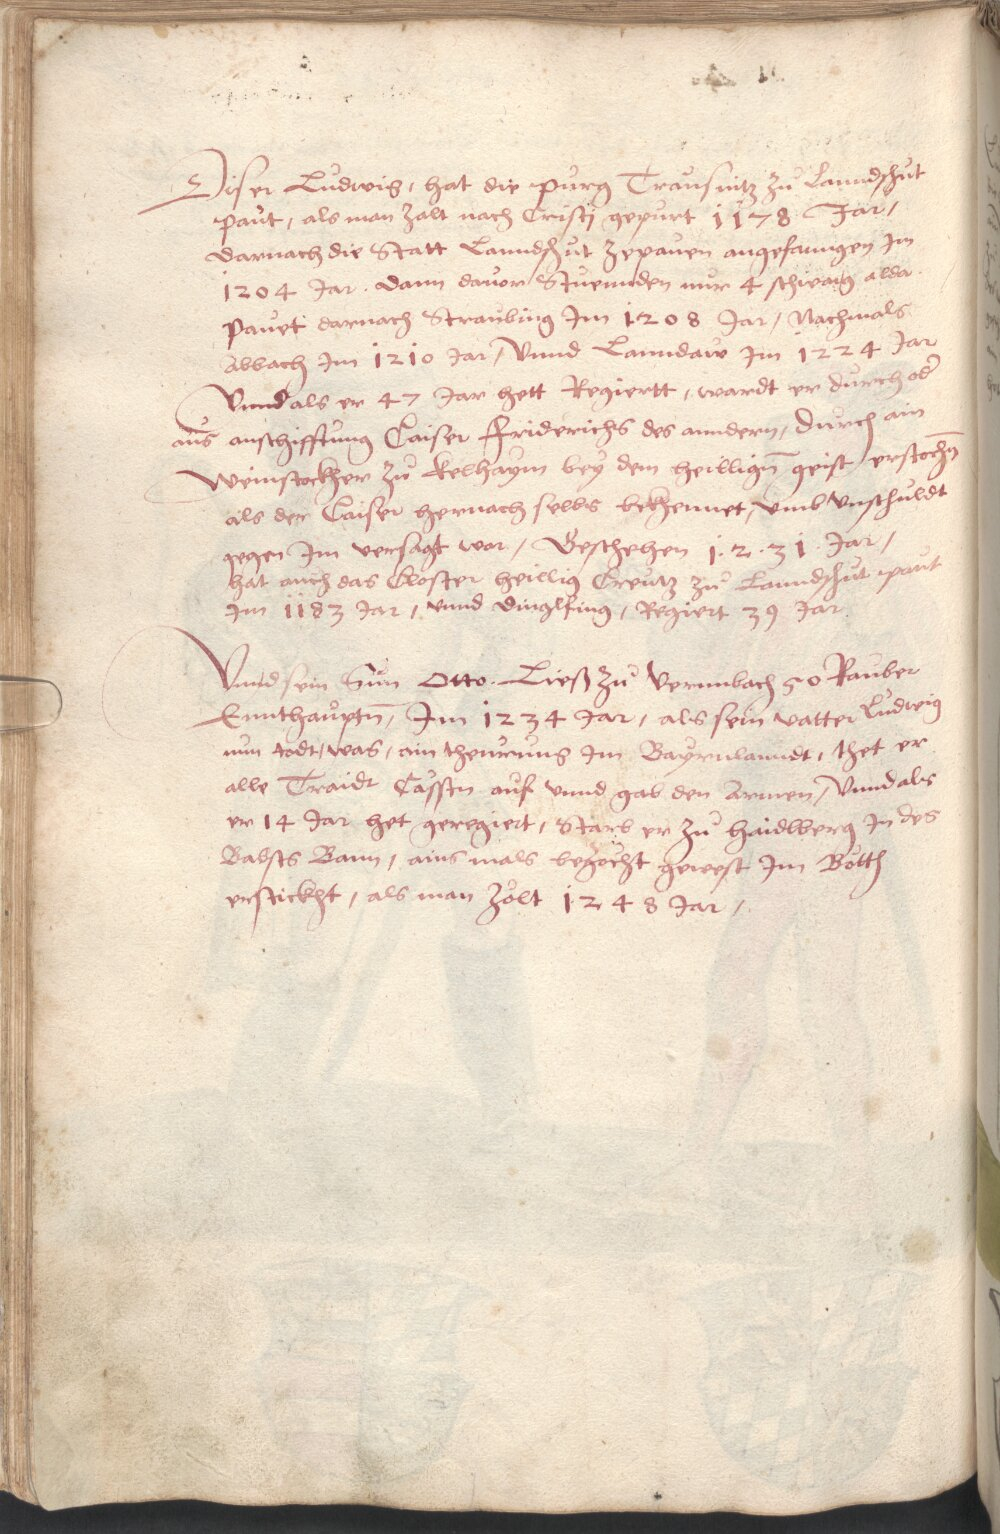 Diser Ludwig, hat die purg Trausnitz zu Lanndshut
paut, als man zalt nach Cristi gepurt 1178 Jar,
darnach die Statt Lanndshut zepauen angefanngen Im
1204 Jar. dann davor Stuennden nur 4 schwaig alda.
pauet darnach Straubing Im 1208 Jar, Nachmals
Abbach Im 1210 Jar, Vnnd Lanndaw Im 1224 Jar
Vnnd als er 47 Jar hett Regiertt, wardt er durch
aus anschifftung Caiser Friderichs des anndern, durch ain
Weinstockher zu Kelhaym bey dem heilligen geist, erstochen
als der Caiser hernach selbs bekhennet, vmb vnschuldt
gegen Im versagt war, Geschehen 1.2.31 Jar,
hat auch das Closter heillig Creutz zu Lanndshut paut
Im 1183 Jar, vnnd Dinglfing, Regiert 39 Jar
Vnnd sein Sun Otto. Ließ zu Vermbach 50 Rauber
Ennthauptn, Im 1234 Jar, als sein vatter Ludwig
nun todt was, ain theurung Im Bayrnlanndt, thet er
alle Traidt Cassten auf vnnd gab den Armen, Vnnd als
er 14 Jar het geregiert, Starb er zu haidlberg In des
Babsts Bann, ains mals bezocht gewest Im Böth
erstickht, als man zölt 1248 Jar,